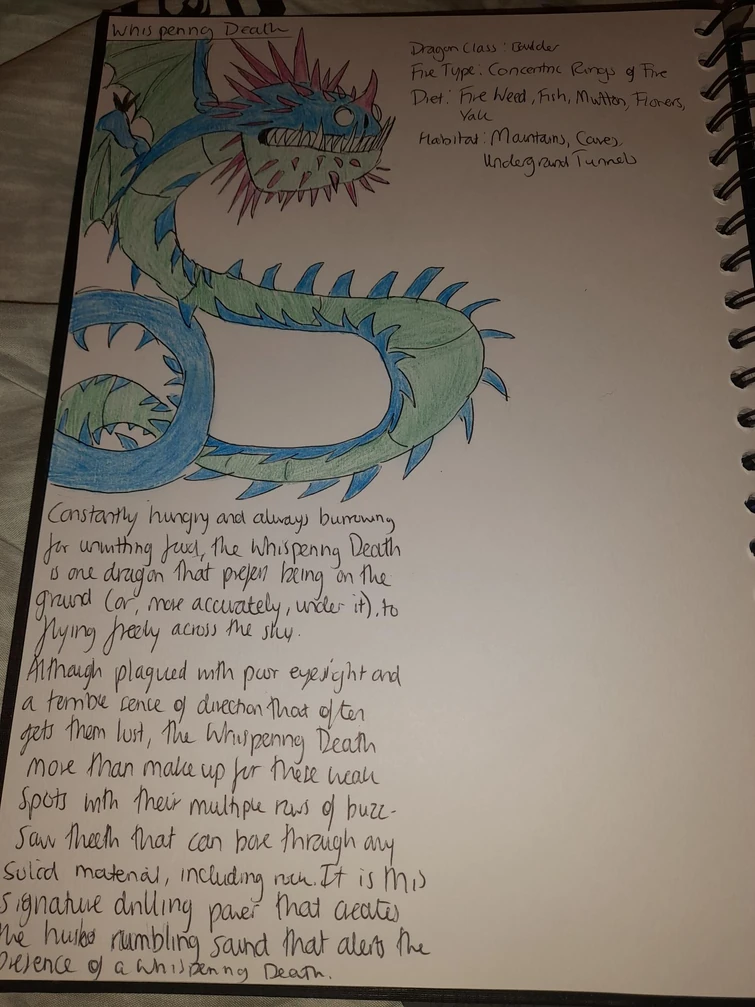 Whispering Death
Dragon Class: Boulder
Fire Type: Concentric Rings of Fire
Diet: Fire Weed, Fish, Mutton, Flowers,
Yak
Habitat: Mountains, Caves,
Underground Tunnels
Constantly hungry and always burrowing
for unwitting food, the Whispering Death
is one dragon that prefers being on the
ground (or, more accurately, under it), to
flying freely across the sky.
Although plagued with poor eyesight and
a terrible sence of direction that often
gets them lost, the Whispering Death
more than make up for these weak
spots with their multiple rows of buzz-
saw theeth that can bore through any
solid material, including rock. It is this
signature drilling power that creates
the rumbling sound that alerts the
presence of a Whispering Death.